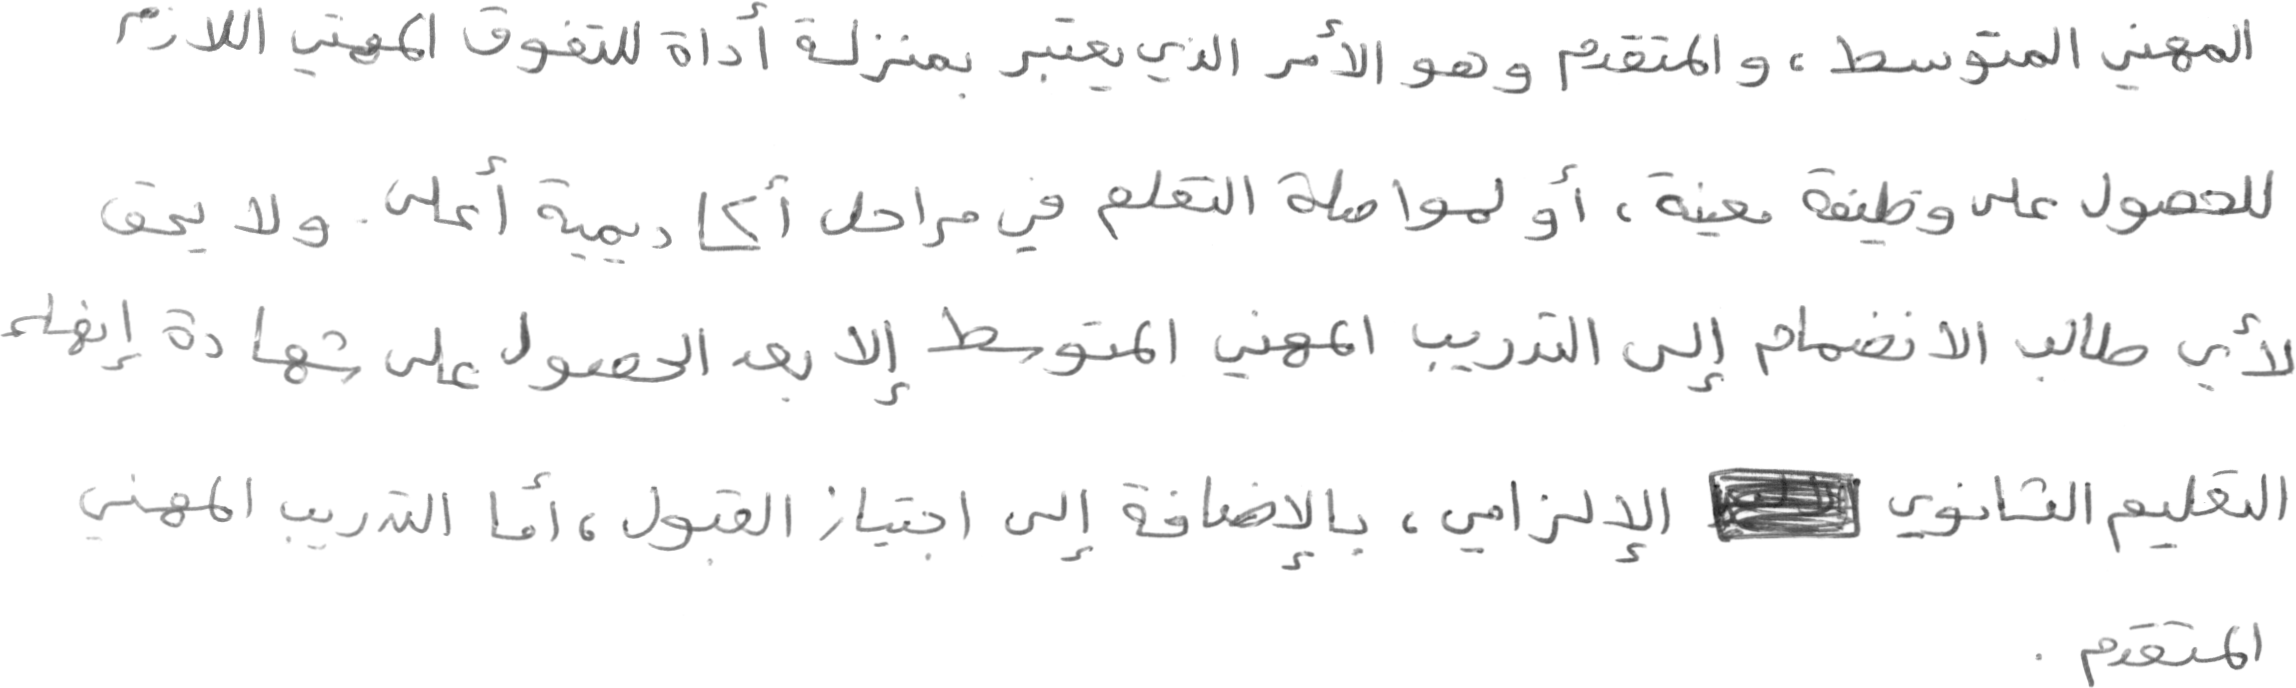 المهني المتوسط، والمتقدم وهو الأمر الذي يعتبر بمنزلة أداة للتفوق المهني اللازم
للحصول على وظيفة معينة، أو لمواصلة التعلم في مراحل أكاديمية أعلى. ولا يحق
لأي طالب الانضمام إلى التدريب المهني المتوسط إلا بعد الحصول على شهادة إنهاء
التعليم الثانوي الإلزامي، بالإضافة إلى اجتياز القبول، أما التدريب المهني
المتقدم.